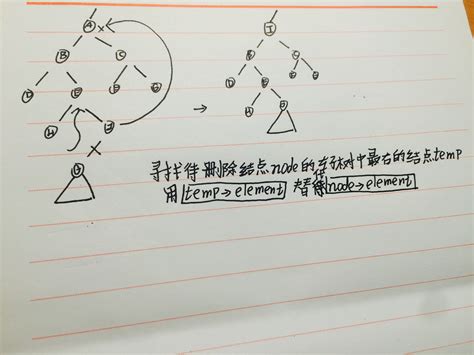 A
B C
D E F G
H I
J
I
B C
D E F G
H J
寻找待删除结点node的左子树中最右的结点temp
用 temp→element 替代 node→element